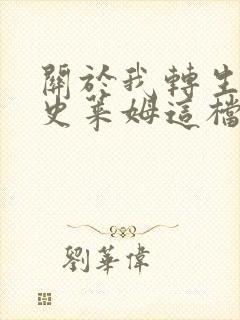 關於我轉生
史萊姆這檔
劉華偉